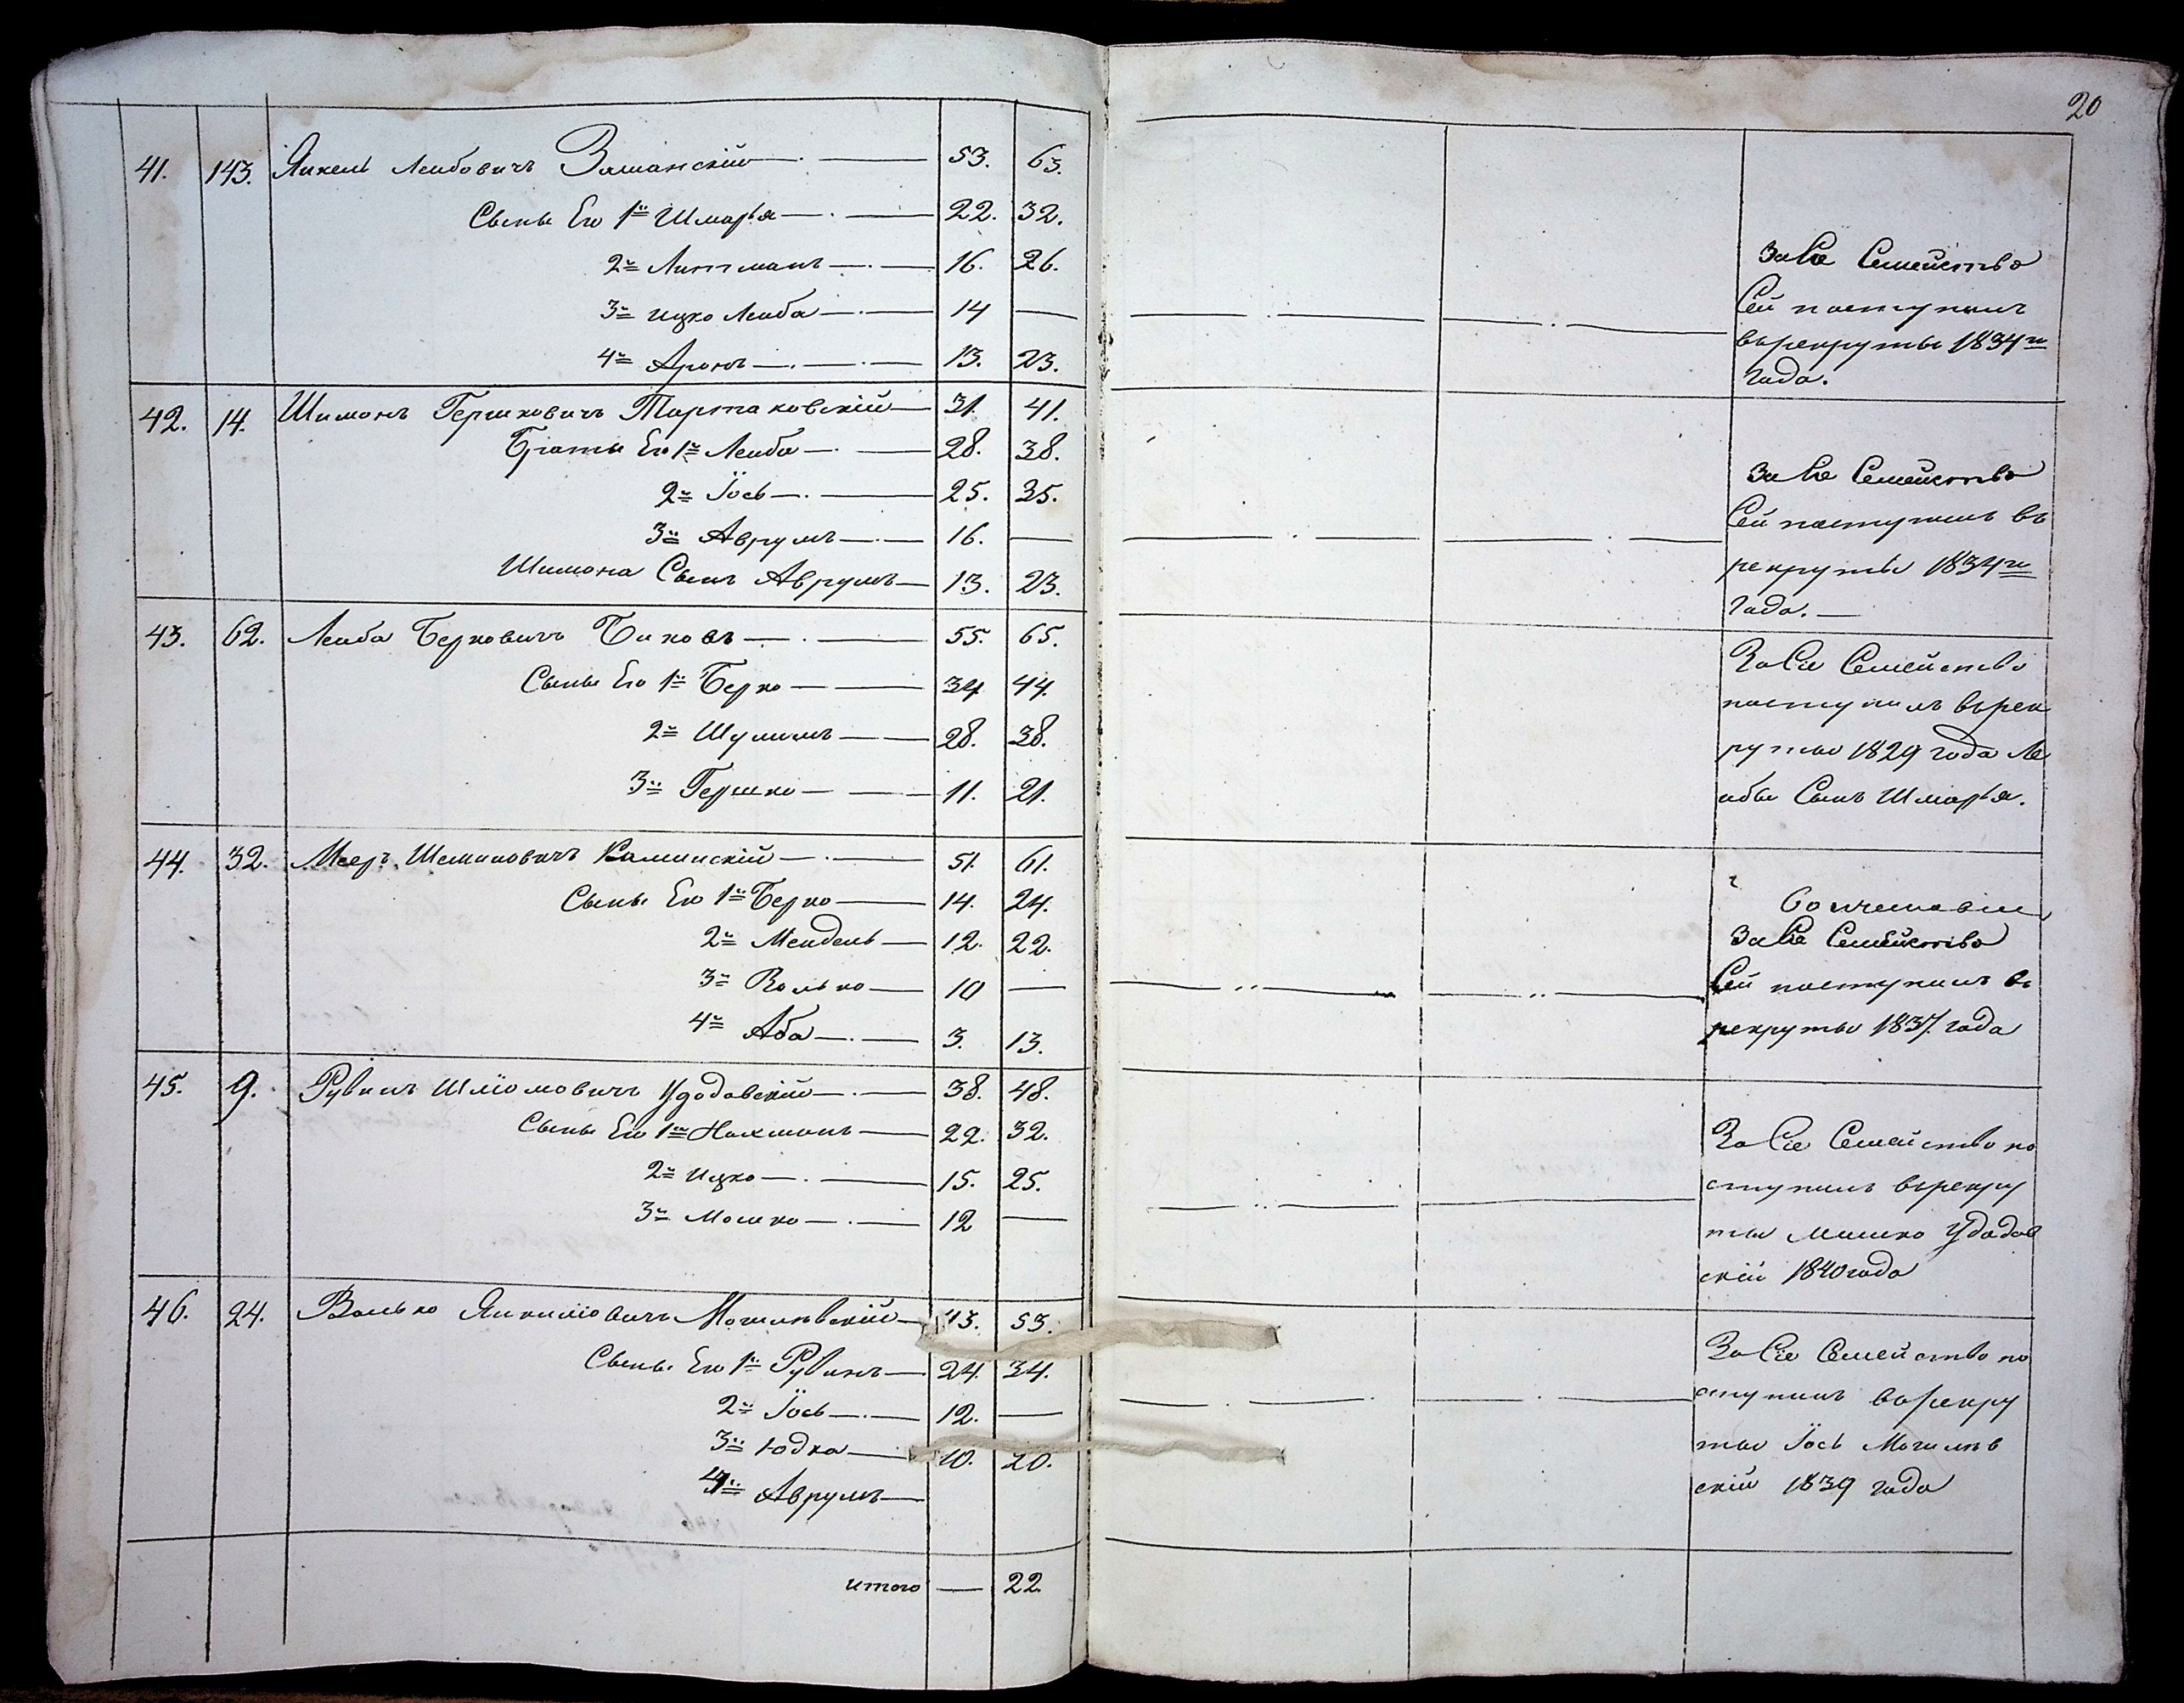 20
41. 143. Янкель Лейбовичъ Заманскій 53. 63.
Сыны Его 1й Шмарья 22. 32.
2й Литманъ 16. 26.
3й Ицко Лейба 14 —
4й Аронъ 13. 23.
За Сіе Семейство
Сей поступилъ
въ рекруты 1834го
года.
42. 14. Шимонъ Гершковичъ Тартаковскій 31. 41.
Браты Его 1й Лейба 28. 38.
2й Іось 25. 35.
3й Аврумъ 16. —
Шимона Сынъ Аврумъ 13. 23.
За Сіе Семейство
Сей поступилъ въ
рекруты 1834го
года. —
43. 62. Лейба Берковичъ Биковъ 55. 65.
Сыны Его 1й Берко 34 44.
2й Шулимъ 28. 38.
3й Гершко 11. 21.
За Сіе Семейство
поступилъ въ рек
руты 1829 года Ле
йбы Сынъ Шмарья.
44. 32. Мееръ Каминскій 51. 61.
Сыны Его 1й Берко 14. 24.
2й Мендель 12. 22.
3й Волько 10 —
4й Аба 3. 13.
За Сіе Семейство
Сей поступилъ въ
рекруты 1837. года
45. 9. Рувинъ Шліомовичъ Удодовскій 38. 48.
Сыны Его 1й Нахманъ 22. 32.
2й Ицко 15. 25.
3й Мошко 12 —
За Сіе Семейство по
ступилъ въ рекру
ты Мошко Удодов
скій 1840 года
46. 24. Волько Янкиліовичъ Могилевскій 43. 53.
Сыны Его 1й Рувинъ 24. 34.
2й Іось 12. —
3й Юдка 10. 20.
4й Аврумъ
За Сіе Семейство по
ступилъ въ рекру
ты Іось Могилев
скій 1839 года
итого — 22.